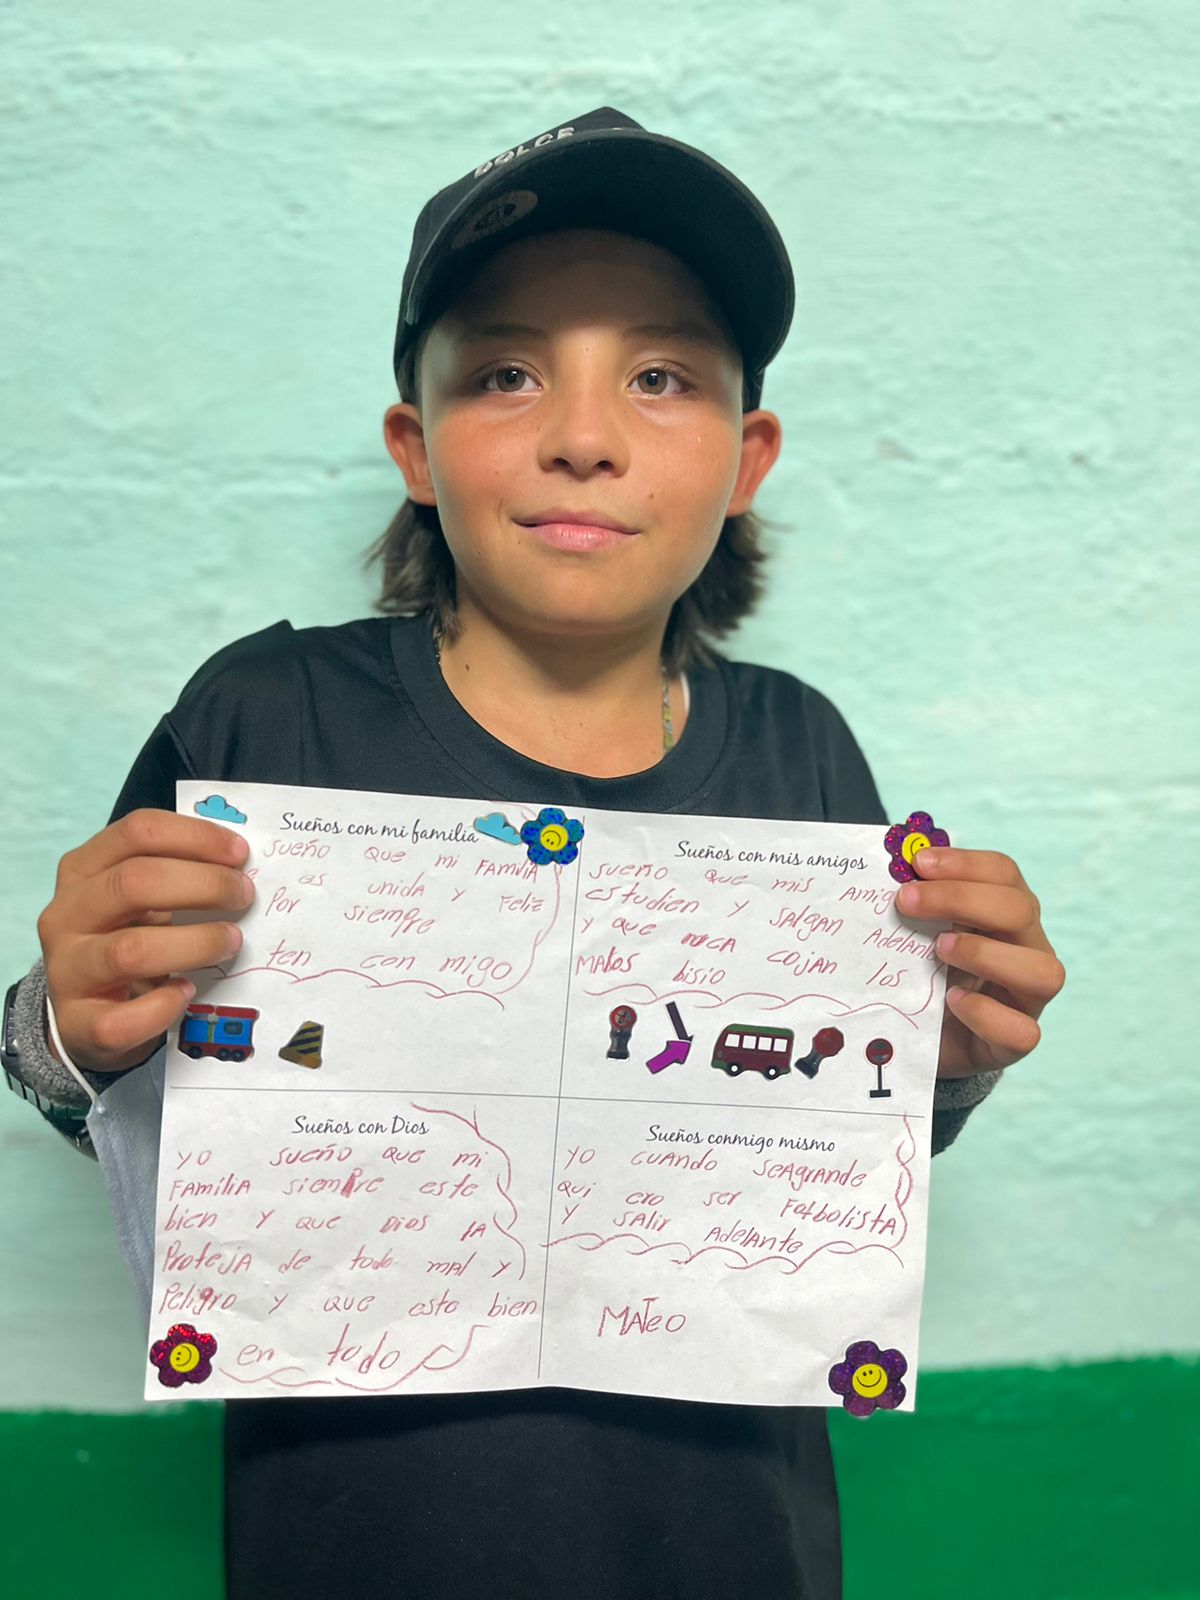 DOLCE
Sueños con mi familia
sueño que mi Familia
es unida y Feliz
Por siempre
ten con migo
Sueños con mis amigos
sueño que mis Amig
estudien y sALgan Adelante
y que nuca cojan los
MAlos bisio
Sueños con Dios
yo sueño que mi
FAmiliA siempre este
bien y que Dios lA
ProtejA de todo mal y
Peligro y que este bien
en todo
Sueños conmigo mismo
yo cuAndo seAgrande
qui ero ser FotbolistA
y sAlir AdelAnte
MATeo